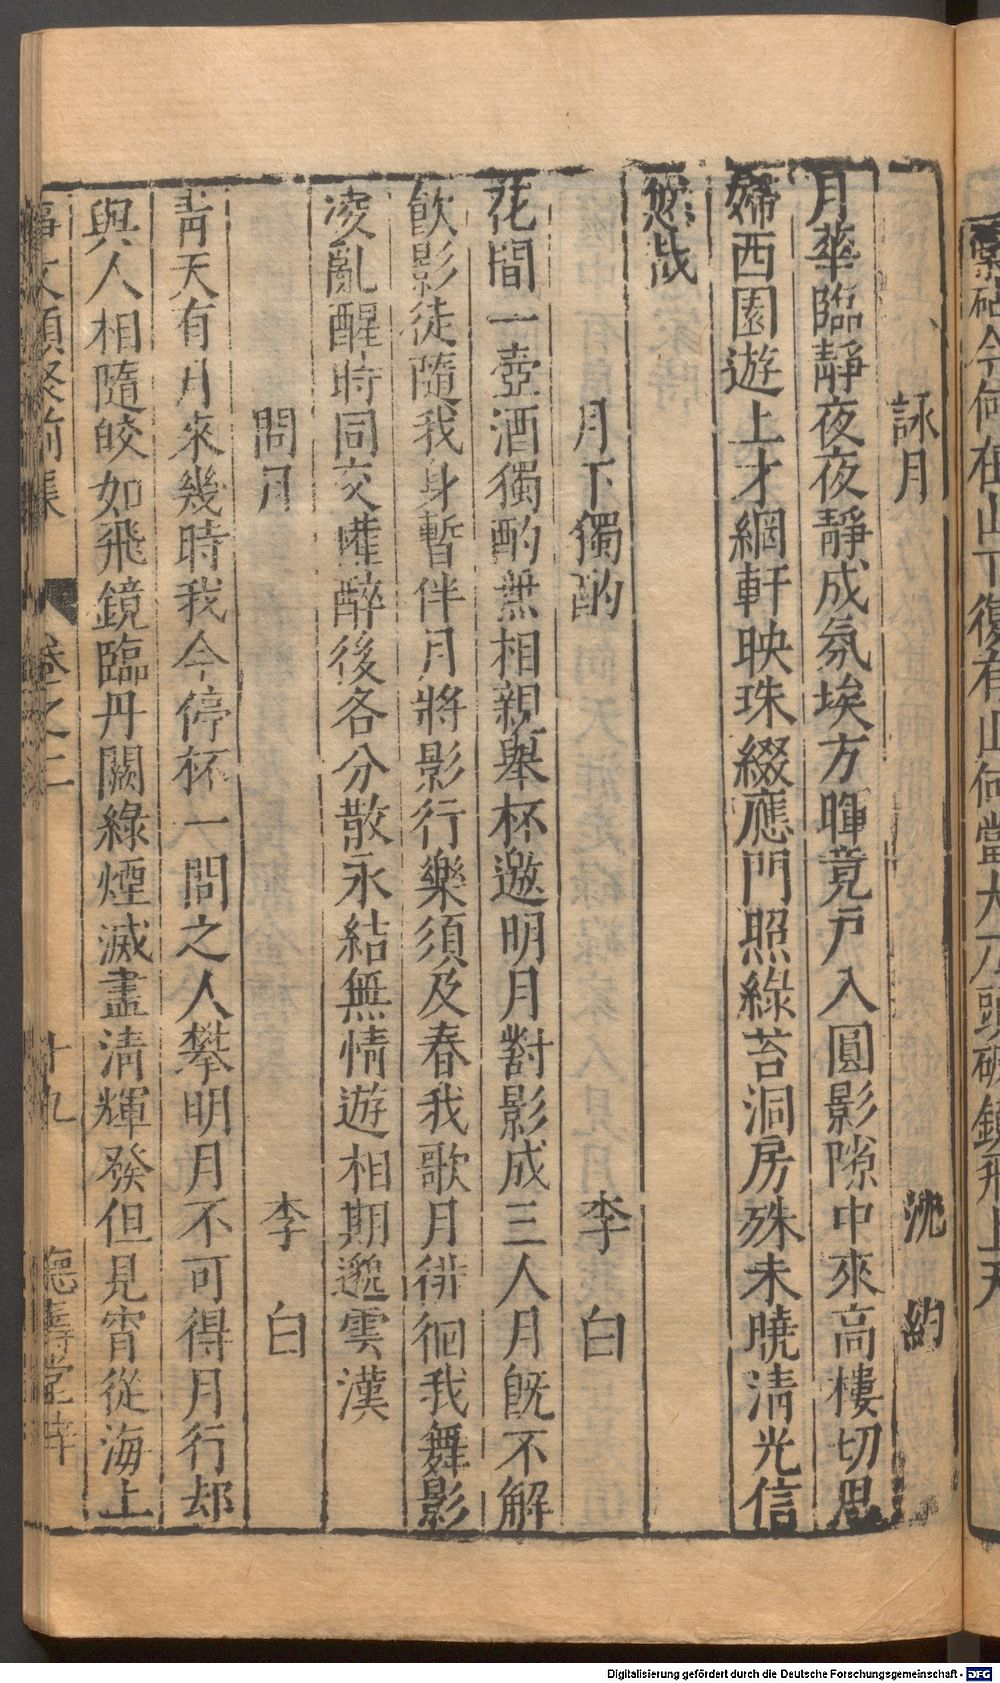 棠砧今何在山上復有山何當大刀頭破鏡飛上天
詠月 沈約
月華臨靜夜夜靜滅氛埃方暉竟戶入圓影隙中來高樓切思
婦西園遊上才網軒映珠綴應門照綠苔洞房殊未曉清光信
悠哉
月下獨酌 李白
花間一壺酒獨酌無相親舉杯邀明月對影成三人月既不解
飲影徒隨我身暫伴月將影行樂須及春我歌月徘徊我舞影
凌亂醒時同交懽醉後各分散永結無情遊相期邈雲漢
問月 李白
青天有月來幾時我今停杯一問之人攀明月不可得月行却
與人相隨皎如飛鏡臨丹闕綠煙滅盡清輝發但見宵從海上
事文類聚前集 卷之二 十九 德壽堂梓
Digitalisierung gefördert durch die Deutsche Forschungsgemeinschaft - DFG